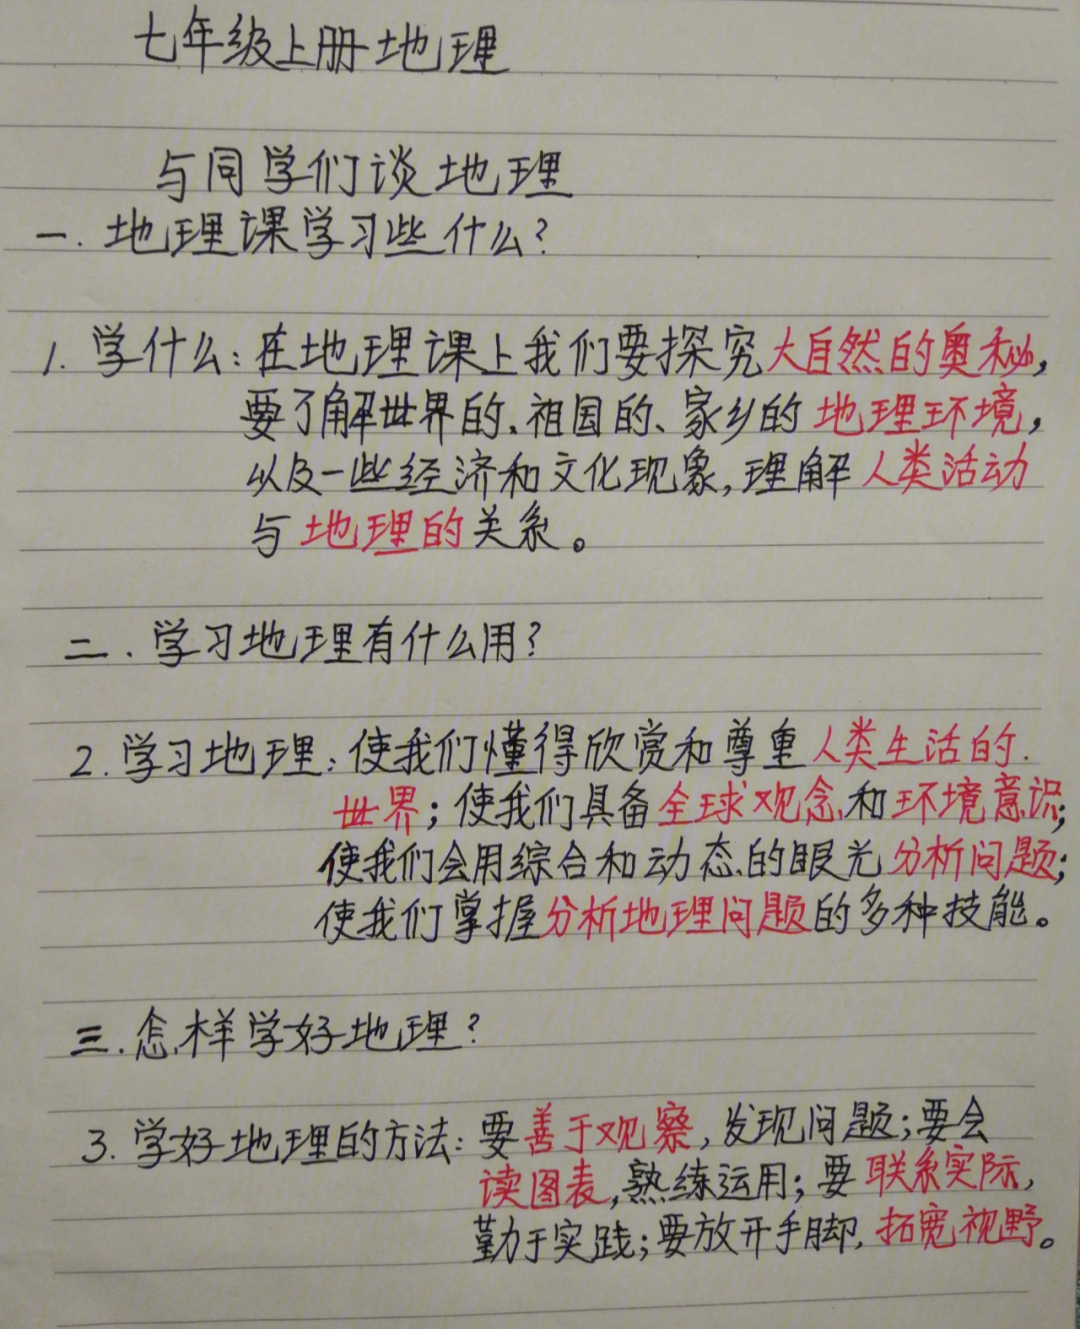 七年级上册地理
与同学们谈地理
一.地理课学习些什么?
1.学什么:在地理课上我们要探究大自然的奥秘,
要了解世界的、祖国的、家乡的地理环境,
以及一些经济和文化现象,理解人类活动
与地理的关系。
二.学习地理有什么用?
2.学习地理:使我们懂得欣赏和尊重人类生活的.
世界;使我们具备全球观念和环境意识;
使我们会用综合和动态的眼光分析问题;
使我们掌握分析地理问题的多种技能。
三.怎样学好地理?
3.学好地理的方法:要善于观察,发现问题;要会
读图表,熟练运用;要联系实际,
勤于实践;要放开手脚,拓宽视野。